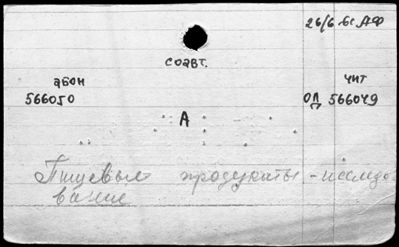 26/6.61. АФ
соавт.
абон чит
566050 ОЛ 566049
А
Пищевые продукты - исследо
вание